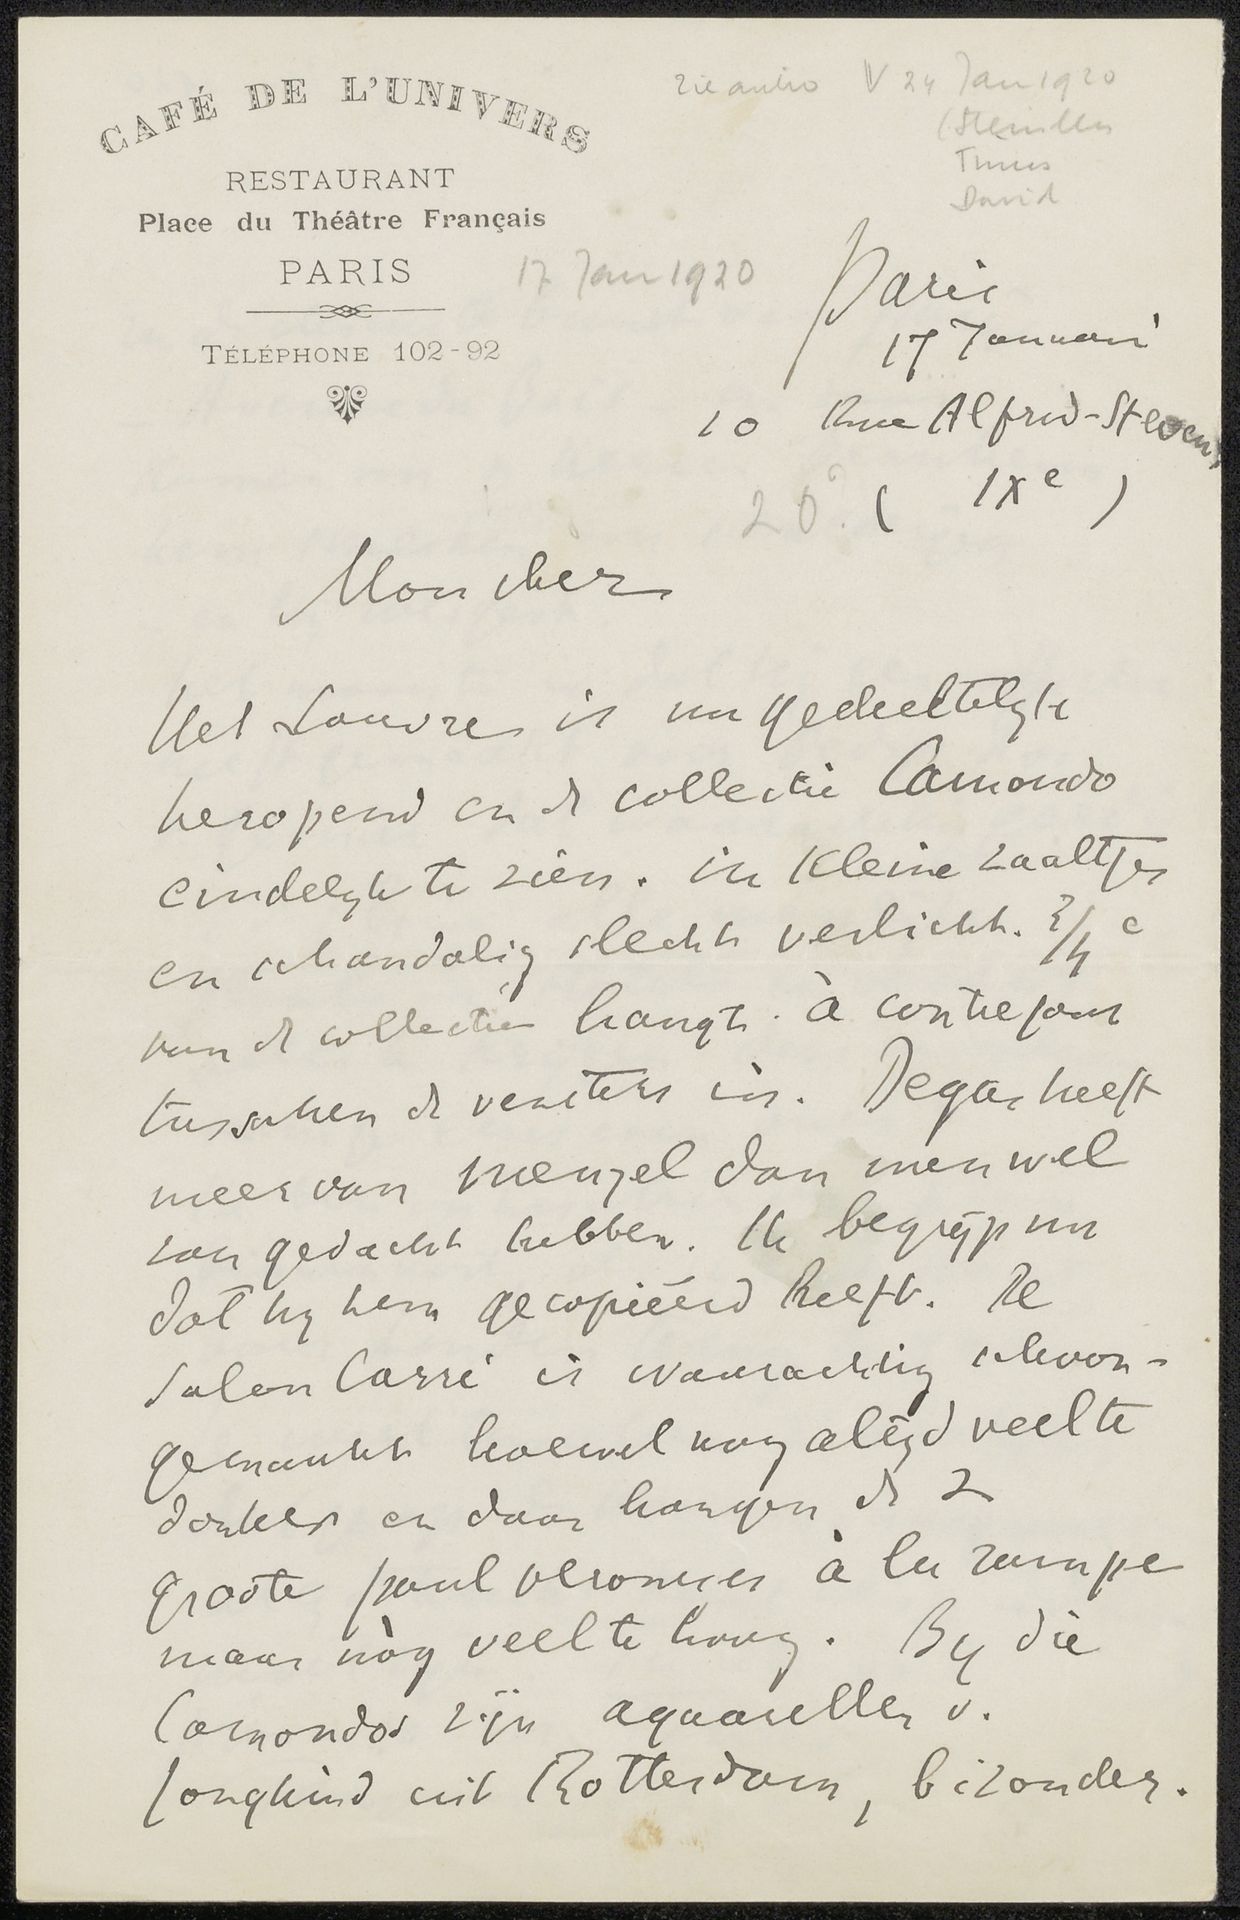 CAFÉ DE L'UNIVERS
RESTAURANT
Place du Théâtre Français
PARIS
TÉLÉPHONE 102-92
V 24 Jan 1920
David
17 Jan 1920
Paris
17 Januari
10 Rue Alfred-Stevens
20? ( IXe )
Mon cher
Het Louvre is nu gedeeltelyk
heropend en de collectie Camondo
eindelyk te zien. in kleine zaaltjes
en schandalig slecht verlicht. 3/4 e
van de collectie hangt à contrejour
tusschen de vensters in. Degas heeft
meer van Menzel dan men wel
zou gedacht hebben. Ik begryp nu
dat hy hem gecopiëerd heeft. De
Salon Carré is waarachtig schoon-
gemaakt hoewel nog altijd veel te
donker en daar hangen de 2
groote Paul Veroneses à la rampe
maar nòg veel te hoog. By die
Camondos zijn aquarellen v.
Jongkind uit Rotterdam, bizonder.